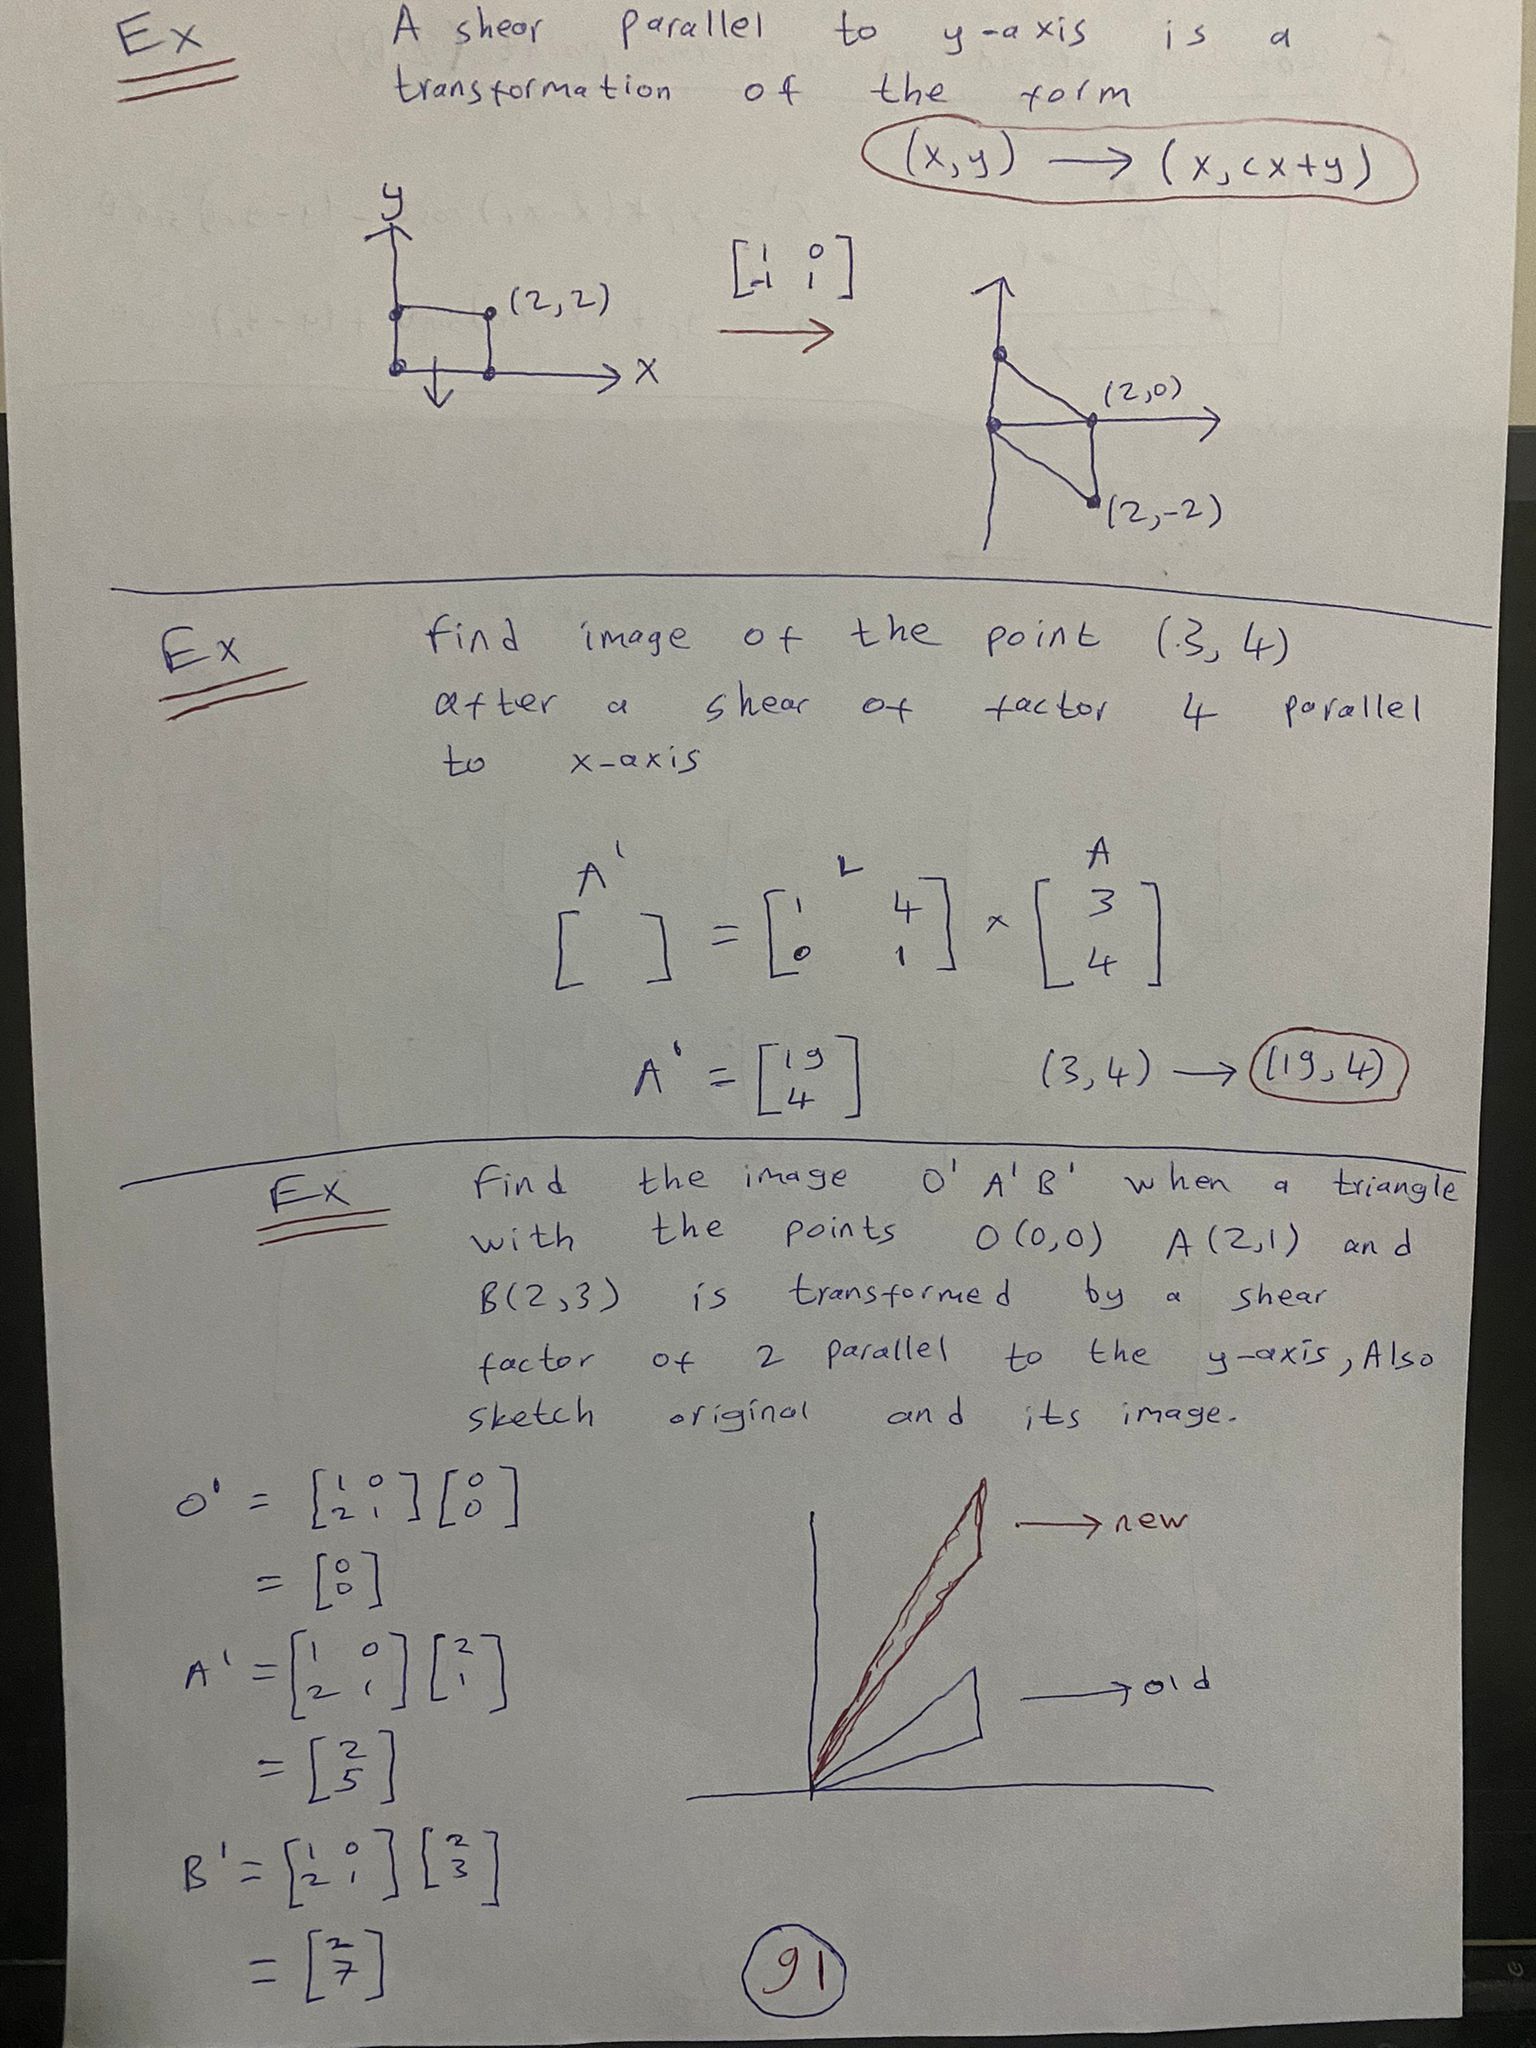 Ex A shear parallel to y-axis is a
transformation of the form
(x,y) → (x, cx+y)
y
(2,2)
x
[1 0
-1 1]
(2,0)
(2,-2)
Ex find image of the point (3, 4)
after a shear of factor 4 parallel
to x-axis
A' A
[ ] = [1 4
0 1] × [3
4]
A' = [19
4] (3,4) → (19,4)
Ex find the image O' A' B' when a triangle
with the points O(0,0) A(2,1) and
B(2,3) is transformed by a shear
factor of 2 parallel to the y-axis, Also
sketch original and its image.
O' = [1 0
2 1] [0
0]
= [0
0]
A' = [1 0
2 1] [2
1]
= [2
5]
B' = [1 0
2 1] [2
3]
= [2
7]
→ new
→ old
91